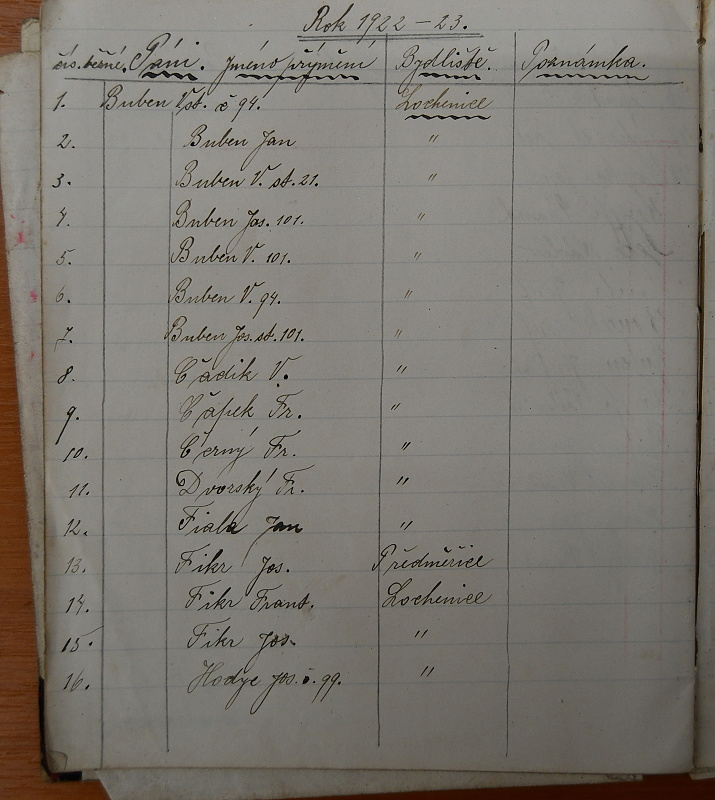 Rok 1922 – 23.
čís. běžné. Páni. Jméno příjmění Bydliště. Poznámka.
1. Buben V. st. č 94. Lochenice
2. Buben Jan "
3. Buben V. st. 21. "
4. Buben Jos. 101. "
5. Buben V. 101. "
6. Buben V. 94. "
7. Buben Jos. st. 101. "
8. Čádik V. "
9. Čápek Fr. "
10. Černý Fr. "
11. Dvorský Fr. "
12. Fiala Jan "
13. Fikr Jos. Předměřice
14. Fikr Frant. Lochenice
15. Fikr Jos. "
16. Jos. č. 99. "